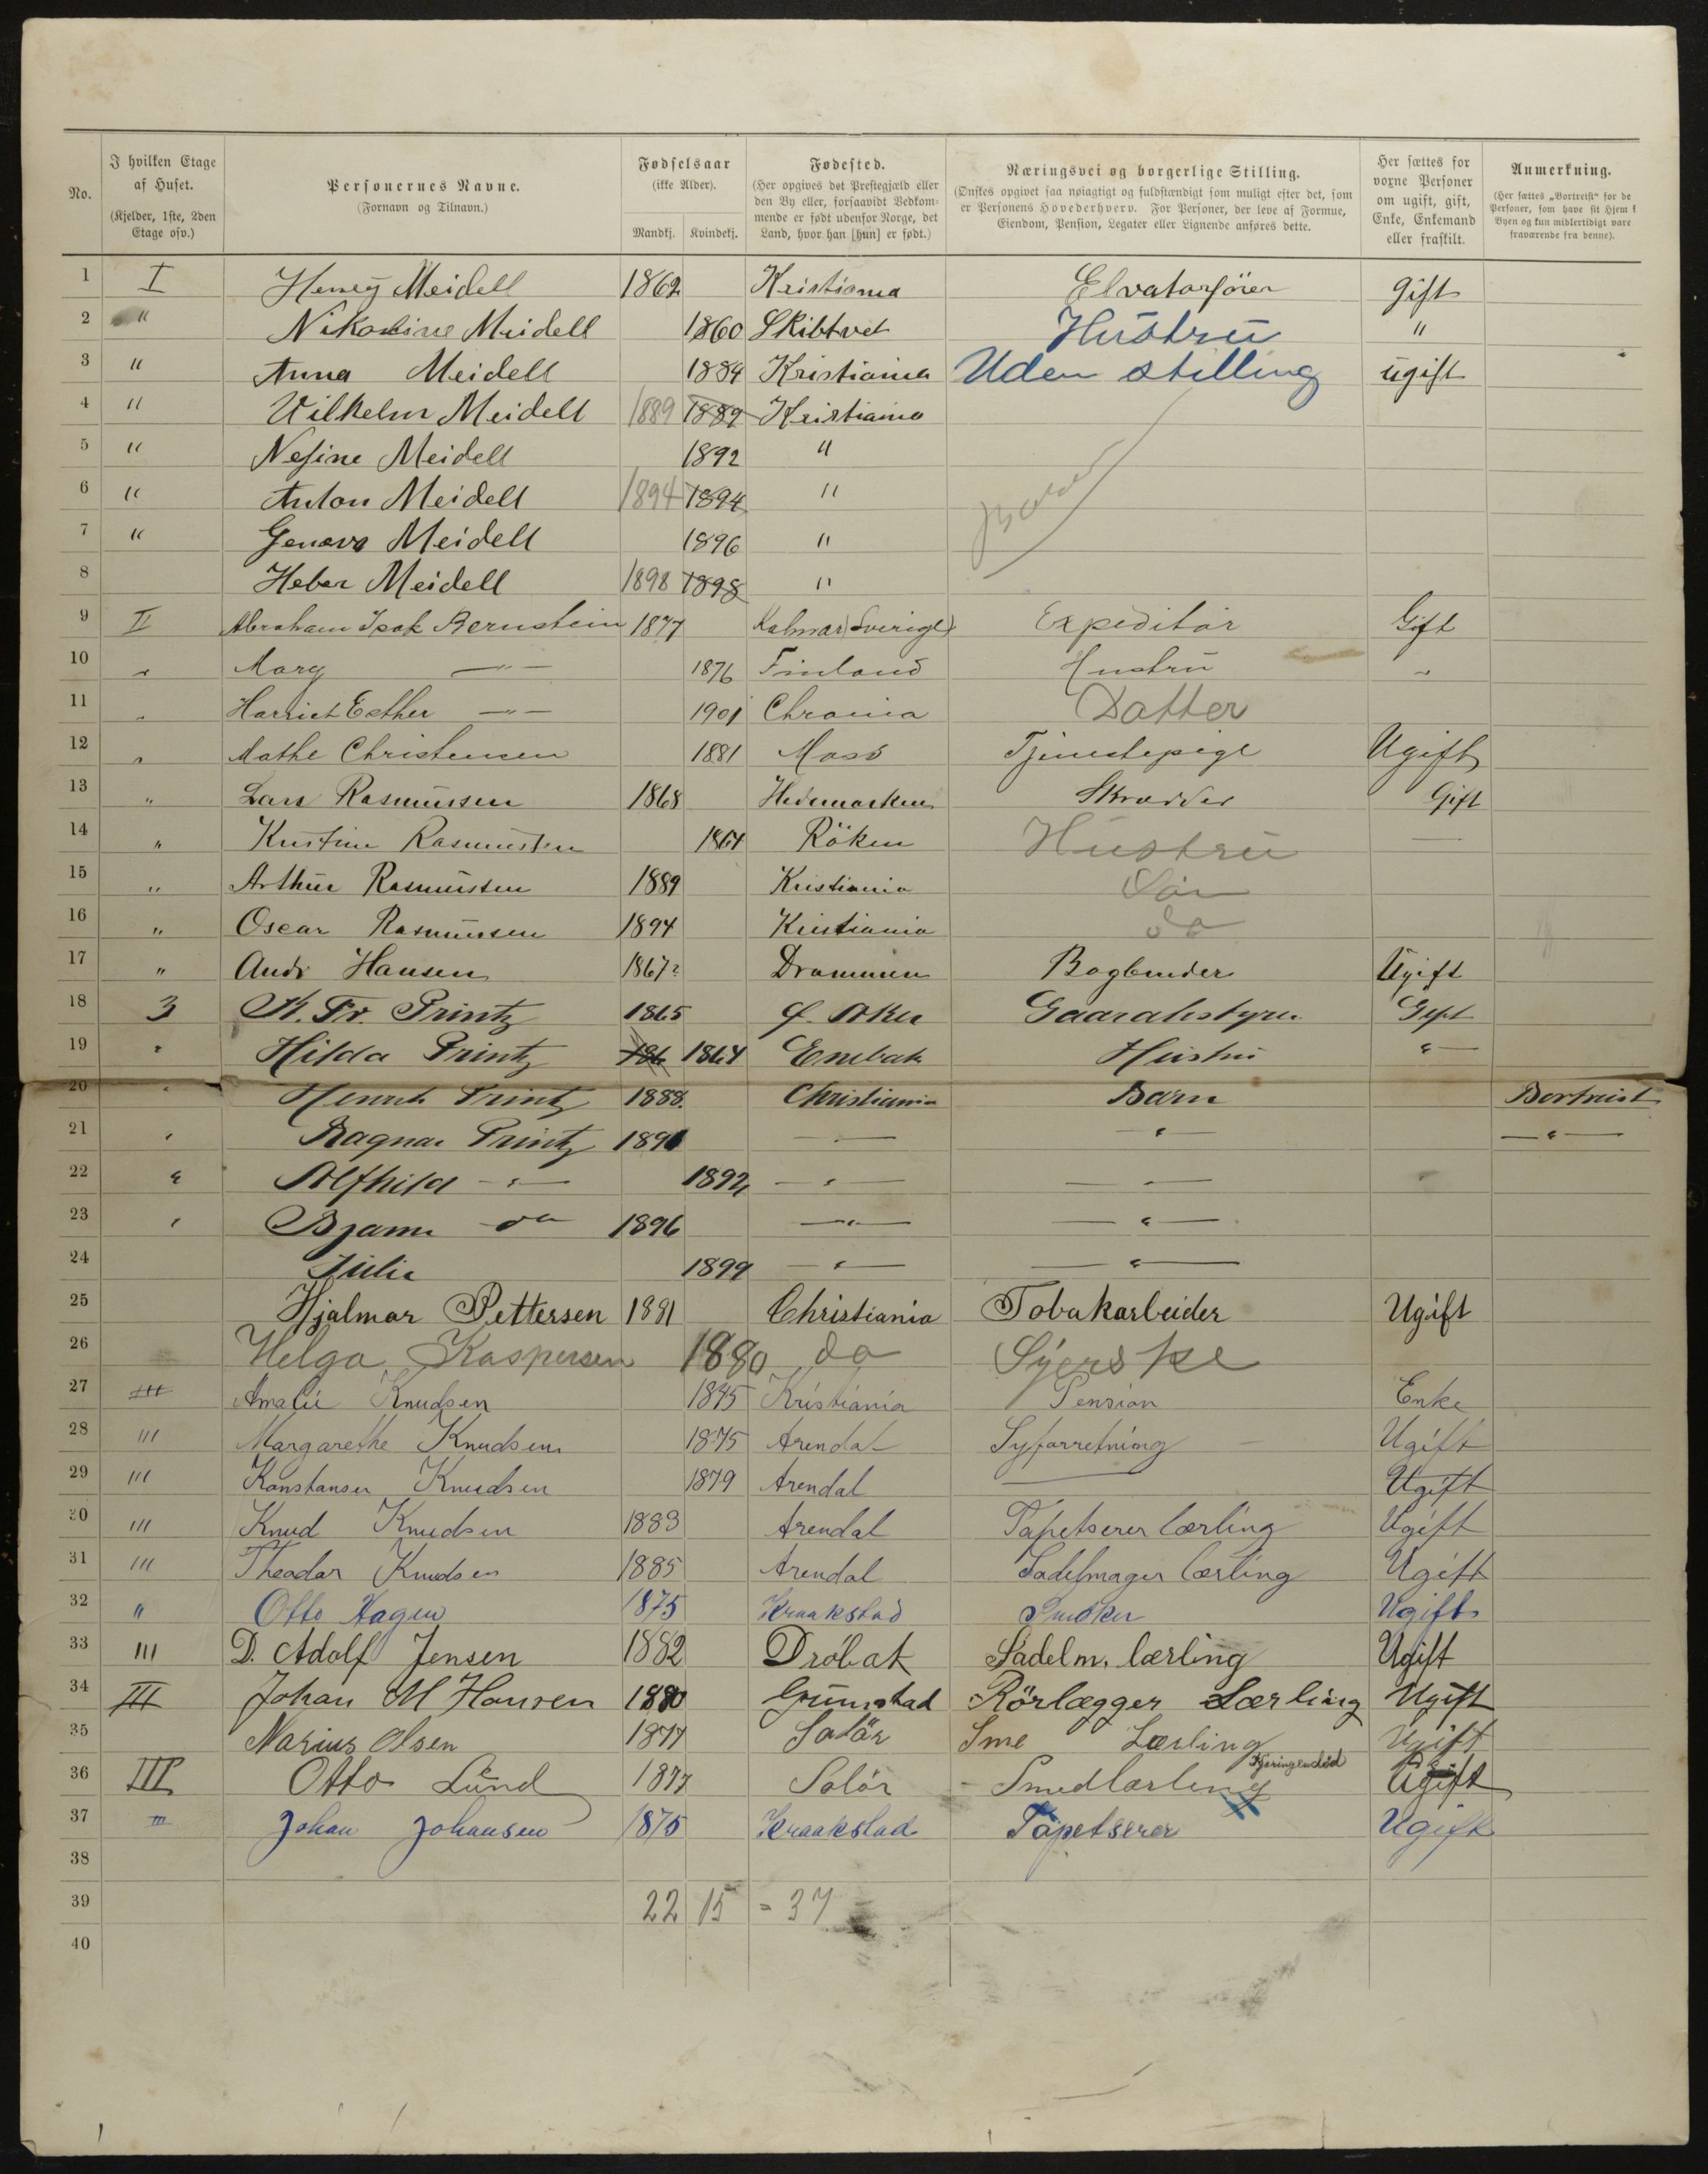 No. I hvilken Etage af Huset. (Kjelder, 1ste, 2den Etage osv.) Personernes Navne. (Fornavn og Tilnavn.) Fødselsaar (ikke Alder). Mandkj. Kvindekj. Fødested. (Her opgives det Prestegjæld eller den By eller, forsaavidt Vedkommende er født udenfor Norge, det Land, hvor han [hun] er født.) Næringsvei og borgerlige Stilling. (Ønskes opgivet saa nøiagtigt og fuldstændigt som muligt efter det, som er Personens Hovederhverv. For Personer, der leve af Formue, Eiendom, Pension, Legater eller Lignende anføres dette. Her sættes for voxne Personer om ugift, gift, Enke, Enkemand eller fraskilt. Anmerkning. (Her sættes „Bortreist“ for de Personer, som have sit Hjem i Byen og kun midlertidigt vare fraværende fra denne).
1 I Henry Meidell 1862 Kristiania Elvatorförer gift
2 " Nikoline Meidell 1860 Skibtvet Hustru "
3 " Anna Meidell 1884 Kristiania Uden stilling ugift
4 " Vilhelm Meidell 1889 1889 Kristiania
5 " Nesine Meidell 1892 "
6 " Anton Meidell 1894 1894 "
7 " Geneva Meidell 1896 "
8 Heber Meidell 1898 1898 "
9 II Abraham Isak Bernstein 1877 Kalmar (Sverige) Expeditör Gift
10 " Mary —"— 1876 Finland Hustru "
11 " Harriet Esther —"— 1901 Chrania Datter
12 " Mathe Christensen 1881 Moss Tjenestepige Ugift
13 " Lars Rasmussen 1868 Hedemarken Skrædder Gift
14 " Kristine Rasmussen 1864 Röken Hustru —
15 " Arthur Rasmussen 1889 Kristiania Sön
16 " Oscar Rasmussen 1894 Kristiania do
17 " Andr Hansen 1867? Drammen Bogbinder Ugift
18 3 K. Fr. Printz 1865 Ø. Aker Gaardbestyrer Gift
19 " Hilda Printz 186 1864 Enebak Hustru "—
20 " Henrik Printz 1888. Christiania Barn Bortreist
21 " Ragnar Printz 1890 —"— —"— —"—
22 " Alfhild —"— 1892 —"— —"—
23 " Bjarne do 1896 —"— —"—
24 Julie 1899 —"— —"—
25 Hjalmar Pettersen 1881 Christiania Tobakarbeider Ugift
26 Helga Kaspersen 1880 do Syerske
27 III Amalie Knudsen 1845 Kristiania Pension Enke
28 III Margarethe Knudsen 1875 Arendal Syforretning Ugift
29 III Konstanse Knudsen 1879 Arendal Ugift
30 III Knud Knudsen 1883 Arendal Tapetserer lærling Ugift
31 III Theodor Knudsen 1885 Arendal Sadelmager lærling Ugift
32 " Otto Hagen 1875 Kraakstad Snedker Ugift
33 III D. Adolf Jensen 1882 Dröbak Sadelm. lærling Ugift
34 III Johan M Hansen 1880 Grimstad Rörlægger Lærling Ugift
35 Marius Olsen 1877 Solör Sme Lærling Ugift
36 III Otto Lund 1877 Solör Smedlærling Ugift
37 III Johan Johansen 1875 Kraakstad Tapetserer Ugift
38
39 22 15 = 37
40